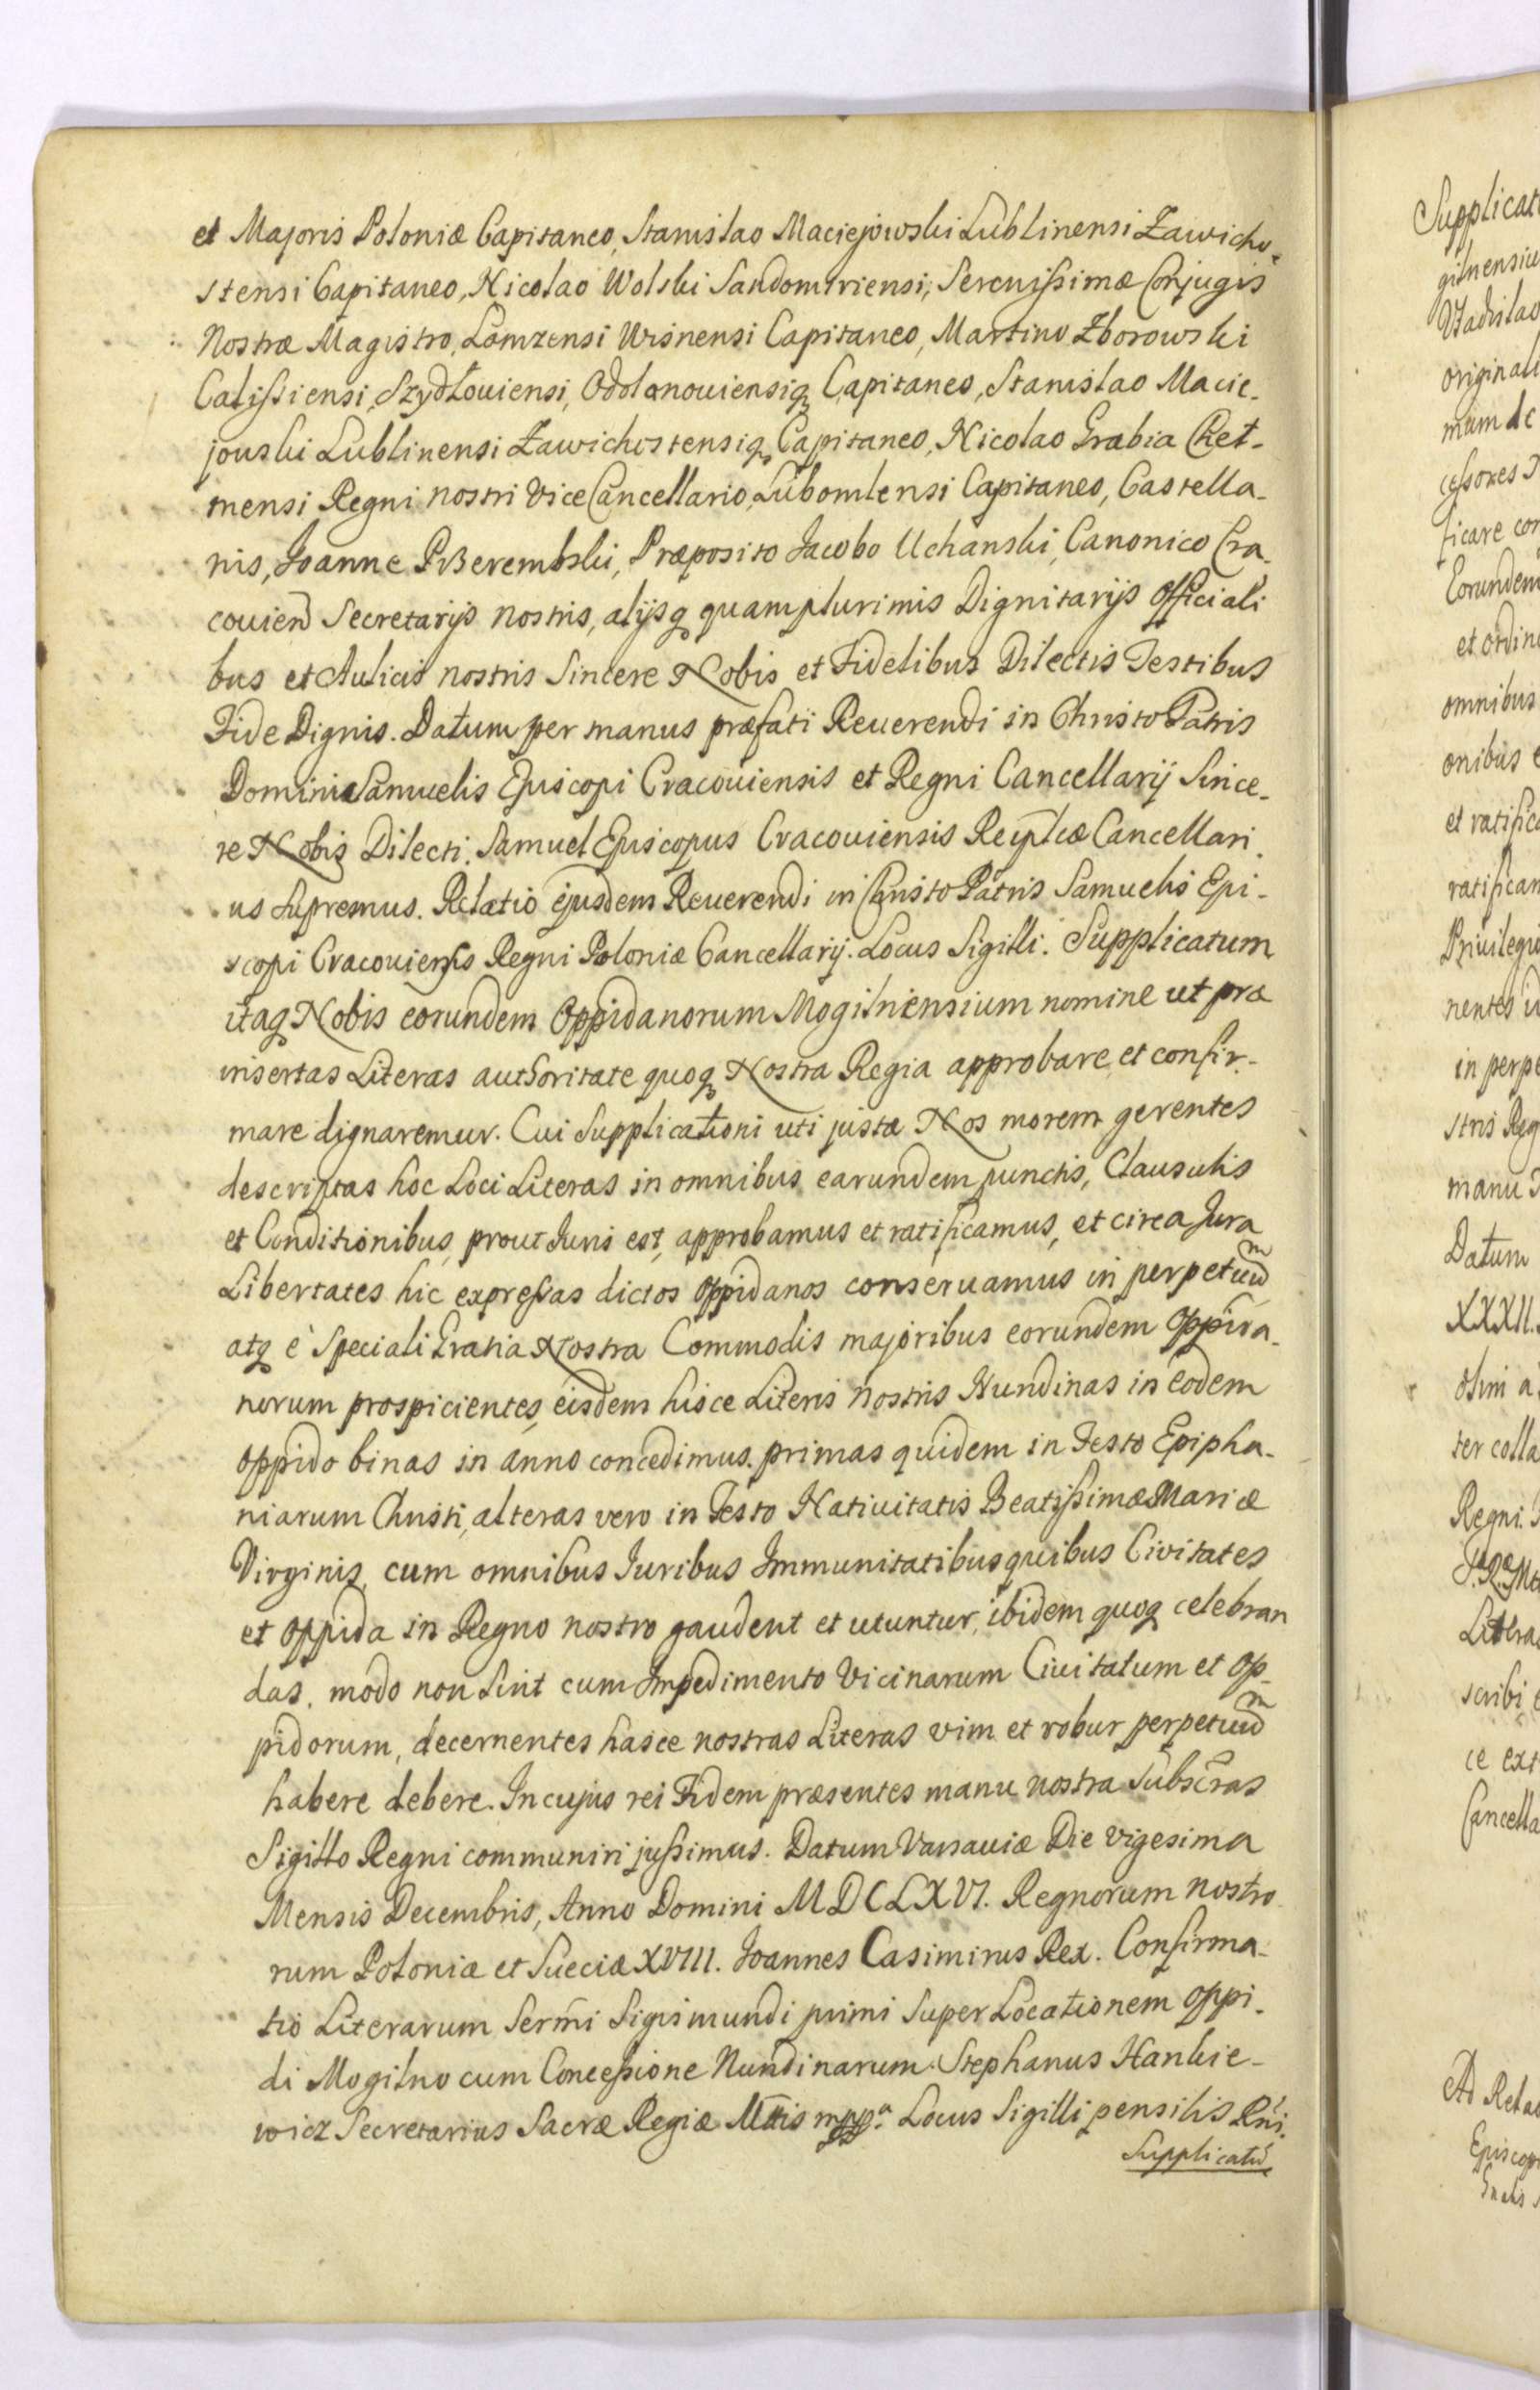 et Majoris Poloniæ Capitaneo, Stanislao Maciejowski Lublinensi Zawicho-
stensi Capitaneo, Nicolao Wolski Sandomiriensi, Serenissimæ Conjugis
Nostræ Magistro, Lomzensi Wisnensi Capitaneo, Martino Zborowski
Calissiensi, Szydłouiensi, Odolanouiensiq Capitaneo, Stanislao Macie-
jouski Lublinensi Zawichostensiq Capitaneo, Nicolao Grabia Chel-
mensi Regni nostri ViceCancellario, Lubomlensi Capitaneo, Castella-
nis, Joanne PrZerembski, Præposito Jacobo Uchanski, Canonico Cra-
couien Secretarijs nostris, alijsq quamplurimis Dignitarijs Officiali
bus et Aulicis nostris Sincere Nobis et Fidelibus Dilectis Testibus
Fide Dignis. Datum per manus præfati Reuerendi in Christo Patris
Domini Samuelis Episcopi Cracouiensis et Regni Cancellarij Since-
re Nobis Dilecti. Samuel Episcopus Cracouiensis Reiplcæ Cancellari
us Supremus. Relatio ejusdem Reuerendi in Christo Patris Samuelis Epi-
scopi Cracouiensis Regni Poloniæ Cancellarij. Locus Sigilli. Supplicatum
itaq Nobis eorundem Oppidanorum Mogilniensium nomine ut præ
insertas Literas authoritate quoq Nostra Regia approbare et confir-
mare dignaremur. Cui Supplicationi uti justæ Nos morem gerentes
descriptas hoc Loci Literas in omnibus earundem punctis, Clausulis
et Conditionibus, prout Juris est, approbamus et ratificamus, et circa Jura
Libertates hic expressas dictos Oppidanos conseruamus in perpetuum
atq è Speciali Gratia Nostra Commodis majoribus eorundem Oppida-
norum prospicientes, eisdem hisce Literis nostris Nundinas in eodem
oppido binas in anno concedimus. primas quidem in Festo Epipha-
niarum Christi, alteras vero in Festo Natiuitatis Beatissimæ Mariæ
Virginis, cum omnibus Juribus Immunitatibus quibus Civitates
et oppida in Regno nostro gaudent et utuntur, ibidem quoq celebran
das. modo non sint cum Impedimento Vicinarum Ciuitatum et Op-
pidorum, decernentes hasce nostras Literas vim et robur perpetuum
habere debere. In cujus rei Fidem præsentes manu nostra Subscras
Sigillo Regni communiri jussimus. Datum Varsauiæ Die vigesima
Mensis Decembris, Anno Domini MDCLXVI. Regnorum nostro
rum Poloniæ et Sueciæ XVIII. Joannes Casimirus Rex. Confirma-
tio Literarum Sermi Sigismundi primi Super Locationem Oppi-
di Mogilno cum Concessione Nundinarum. Stephanus Hankie-
wicz Secretarius Sacræ Regiæ Mttis mppa. Locus Sigilli pensilis Rni.
Supplicatu